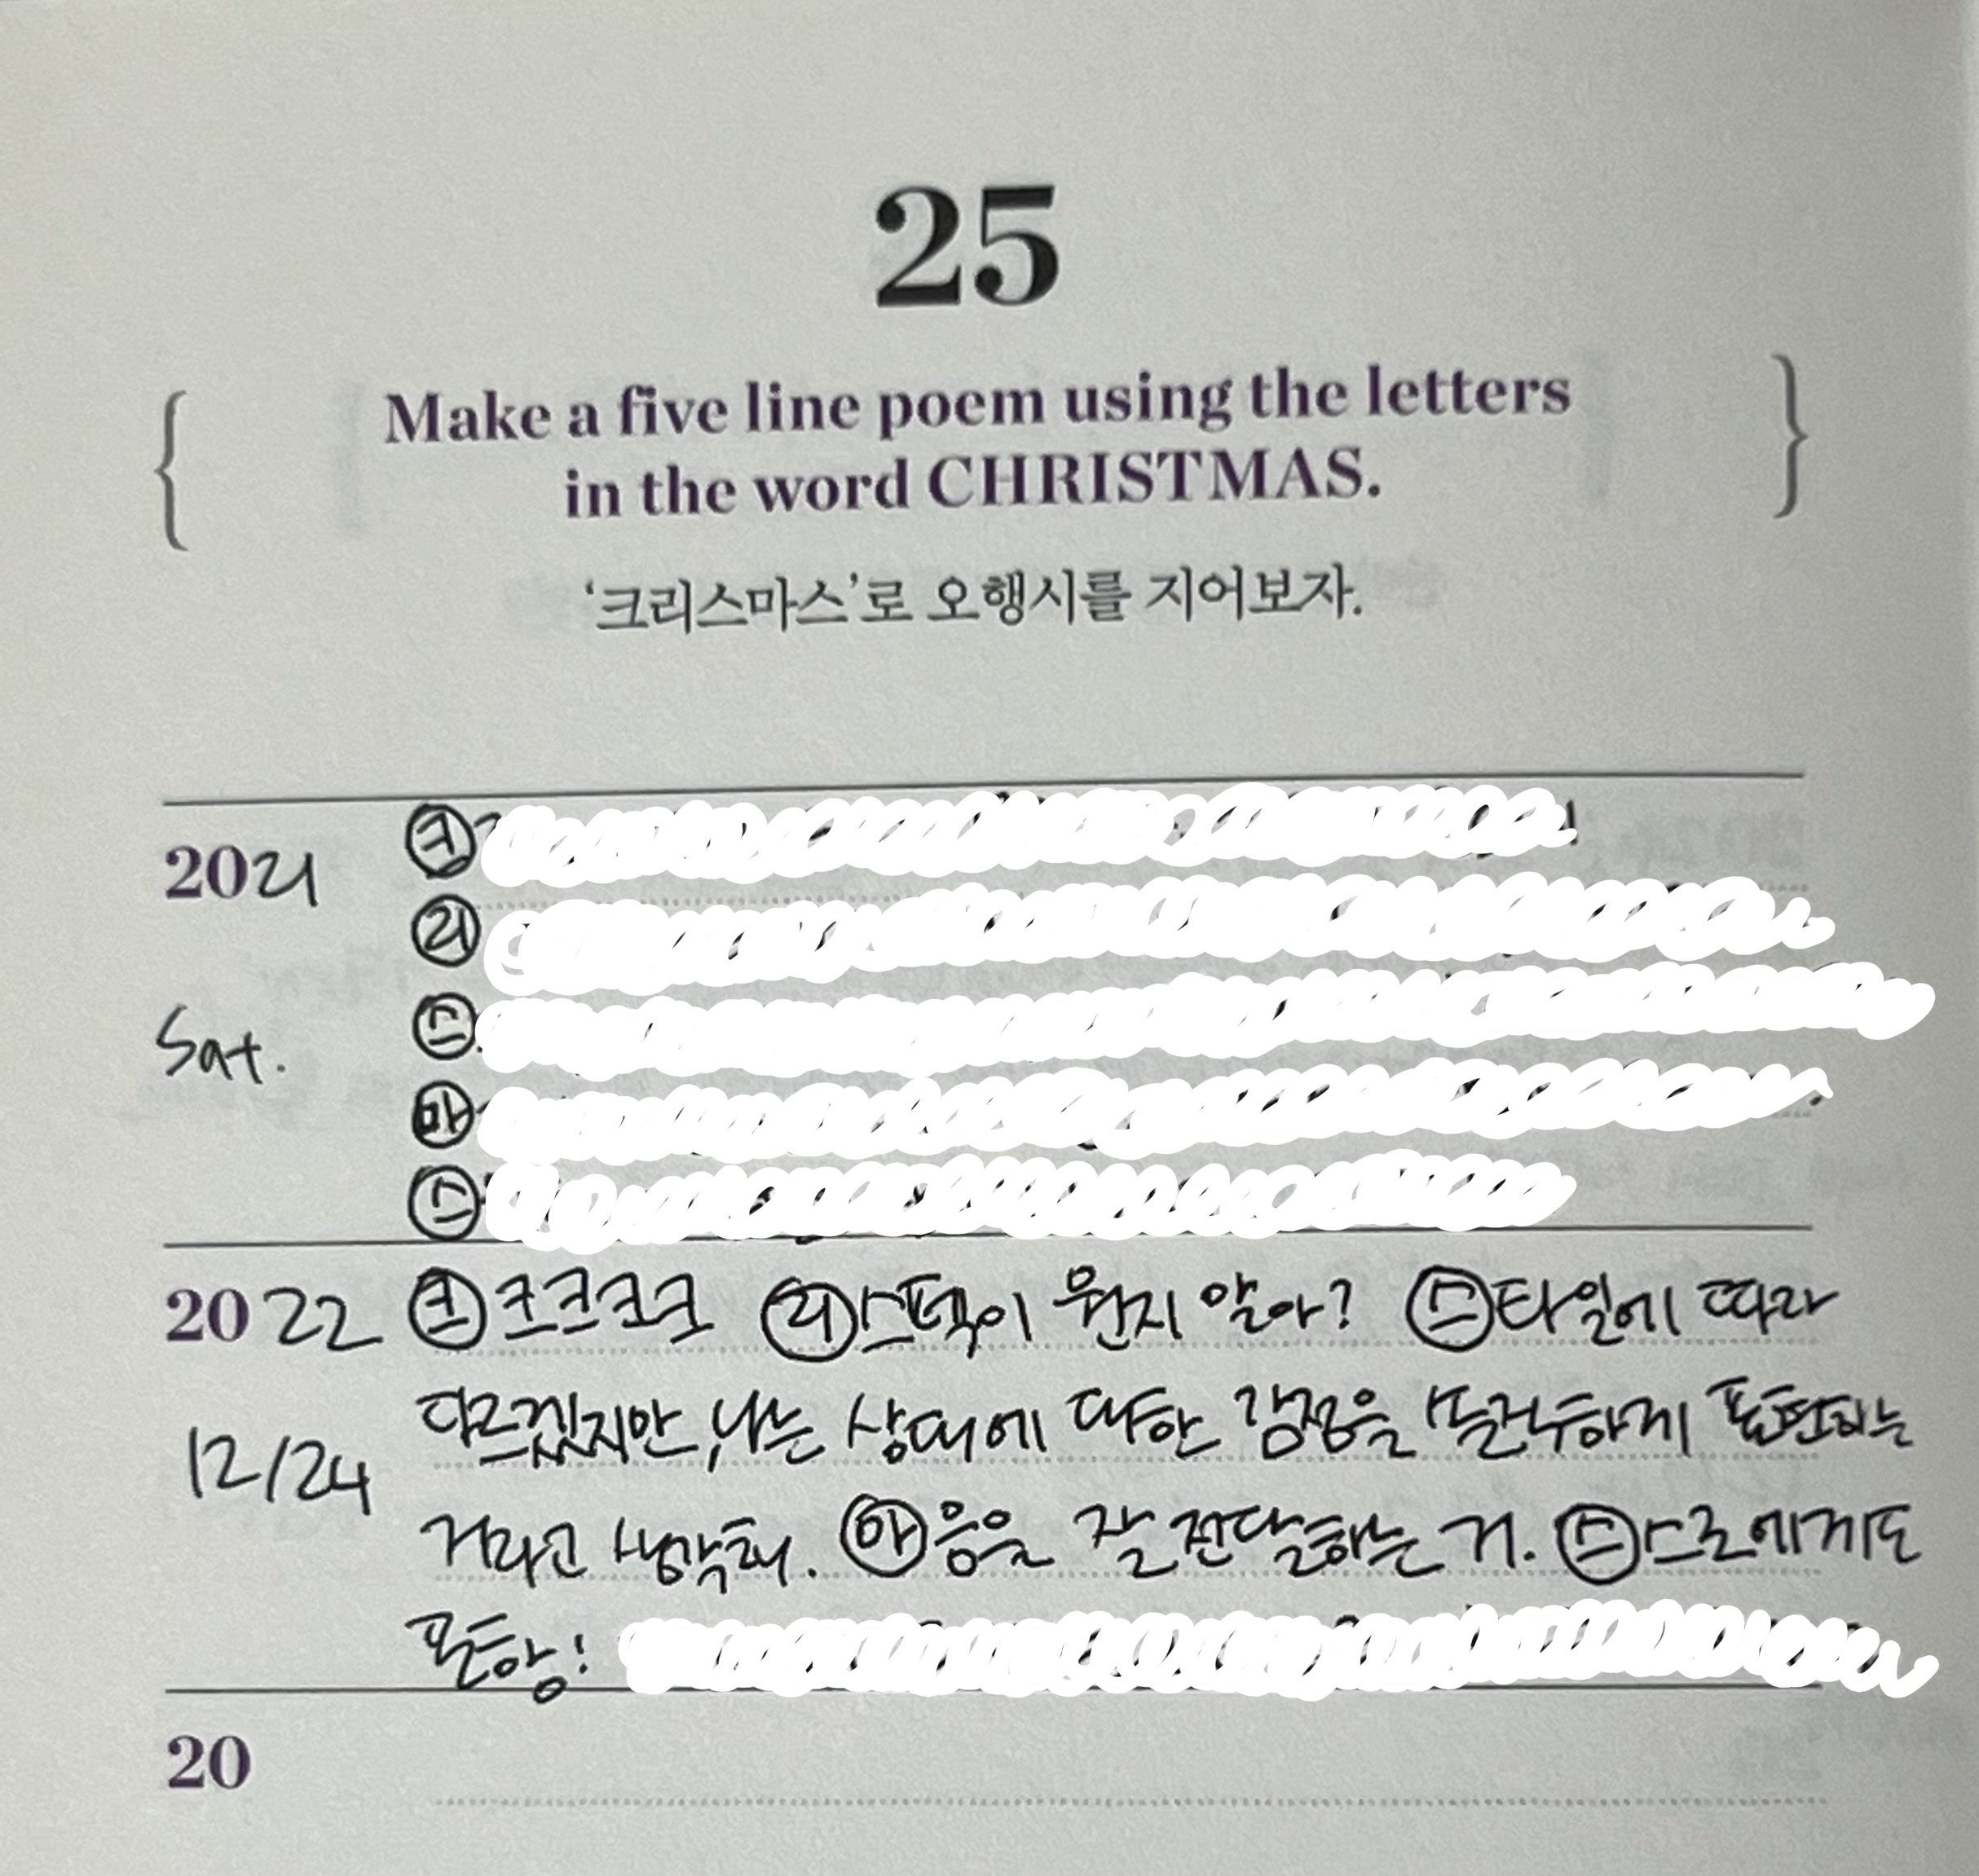 25
Make a five line poem using the letters
in the word CHRISTMAS.
'크리스마스'로 오행시를 지어보자.
2021
크
리
Sat.
스
마
스
2022 크크크크크 리스펙이 뭔지 알아? 스타일에 따라
다르겠지만, 나는 상대에 대한 감정을 표현하는
12/24
거라고 생각해. 마음을 잘 전달하는 거. 스스로에게도

20